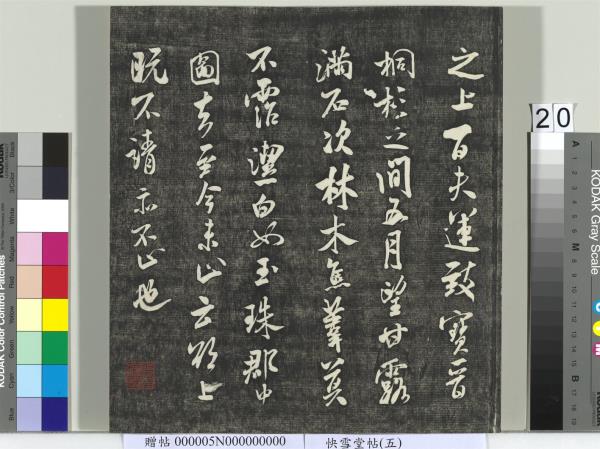 之上百夫運致寶晉
桐杉之間五月望甘露
滿石次林木焦葦莫
不霑潔白如玉珠郡中
圖去至今未止云欲上
既不請亦不止也
20
KODAK Gray Scale
A 1 2 3 4 5 6 M 8 9 10 11 12 13 14 15 B 17 18 19
KODAK Color Control Patches
Blue Cyan Green Yellow Red Magenta White 3/Color Black
贈帖 000005N000000000 快雪堂帖(五)